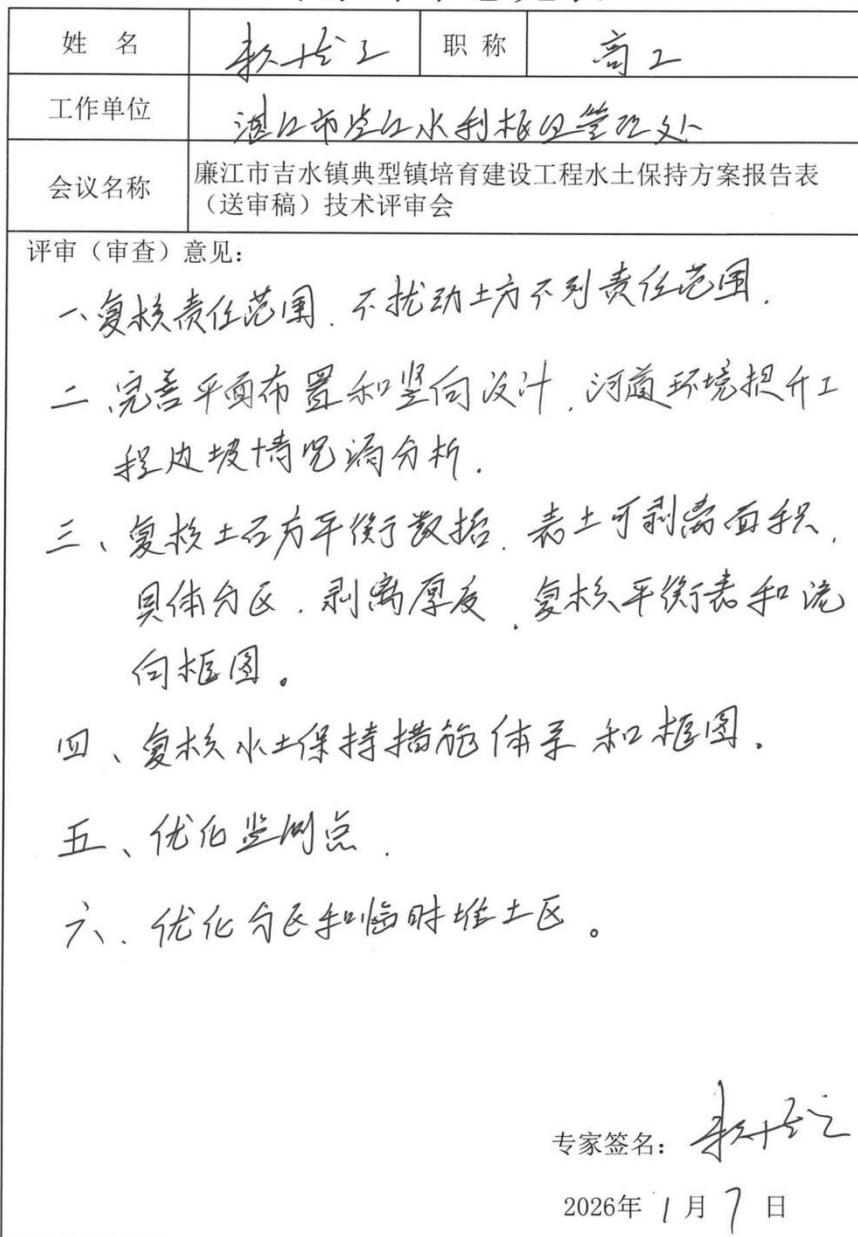 姓 名 职 称 高工
工作单位 湛江市鉴江水利枢纽管理处
会议名称 廉江市吉水镇典型镇培育建设工程水土保持方案报告表
（送审稿）技术评审会
评审（审查）意见：
一、复核责任范围．不扰动土方不列责任范围．
二、完善平面布置和竖向设计．河道环境提升工
程边坡情况需分析．
三、复核土石方平衡数据．表土可剥离面积．
具体分区．剥离厚度．复核平衡表和流
向框图。
四、复核水土保持措施体系和框图．
五、优化监测点．
六．优化分区和临时堆土区。
专家签名：
2026年 1 月 7 日